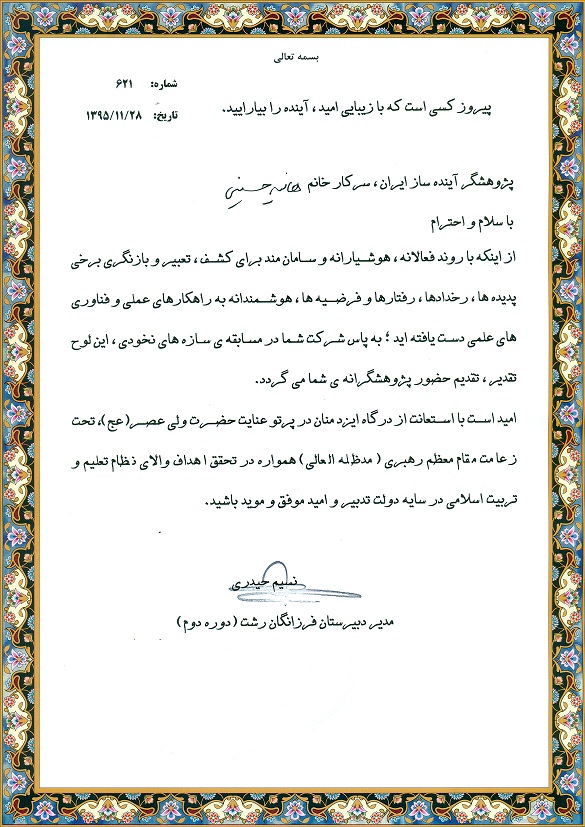 بسمه تعالی
شماره: ۶۲۱
پیروز کسی است که با زیبایی امید، آینده را بیارایید.
تاریخ: ۱۳۹۵/۱۱/۲۸
پژوهشگر آینده ساز ایران، سرکار خانم هانیه حسینی
با سلام و احترام
از اینکه با روند فعالانه، هوشیارانه و سامان مند برای کشف، تعبیر و بازنگری برخی
پدیده ها، رخدادها، رفتارها و فرضیه ها، هوشمندانه به راهکارهای عملی و فناوری
های علمی دست یافته اید؛ به پاس شرکت شما در مسابقه ی سازه های نخودی، این لوح
تقدیر، تقدیم حضور پژوهشگرانه ی شما می گردد.
امید است با استعانت از درگاه ایزد منان در پرتو عنایت حضرت ولی عصر(عج)، تحت
زعامت مقام معظم رهبری (مدظله العالی) همواره در تحقق اهداف والای نظام تعلیم و
تربیت اسلامی در سایه دولت تدبیر و امید موفق و موید باشید.
نسیم حیدری
مدیر دبیرستان فرزانگان رشت (دوره دوم)